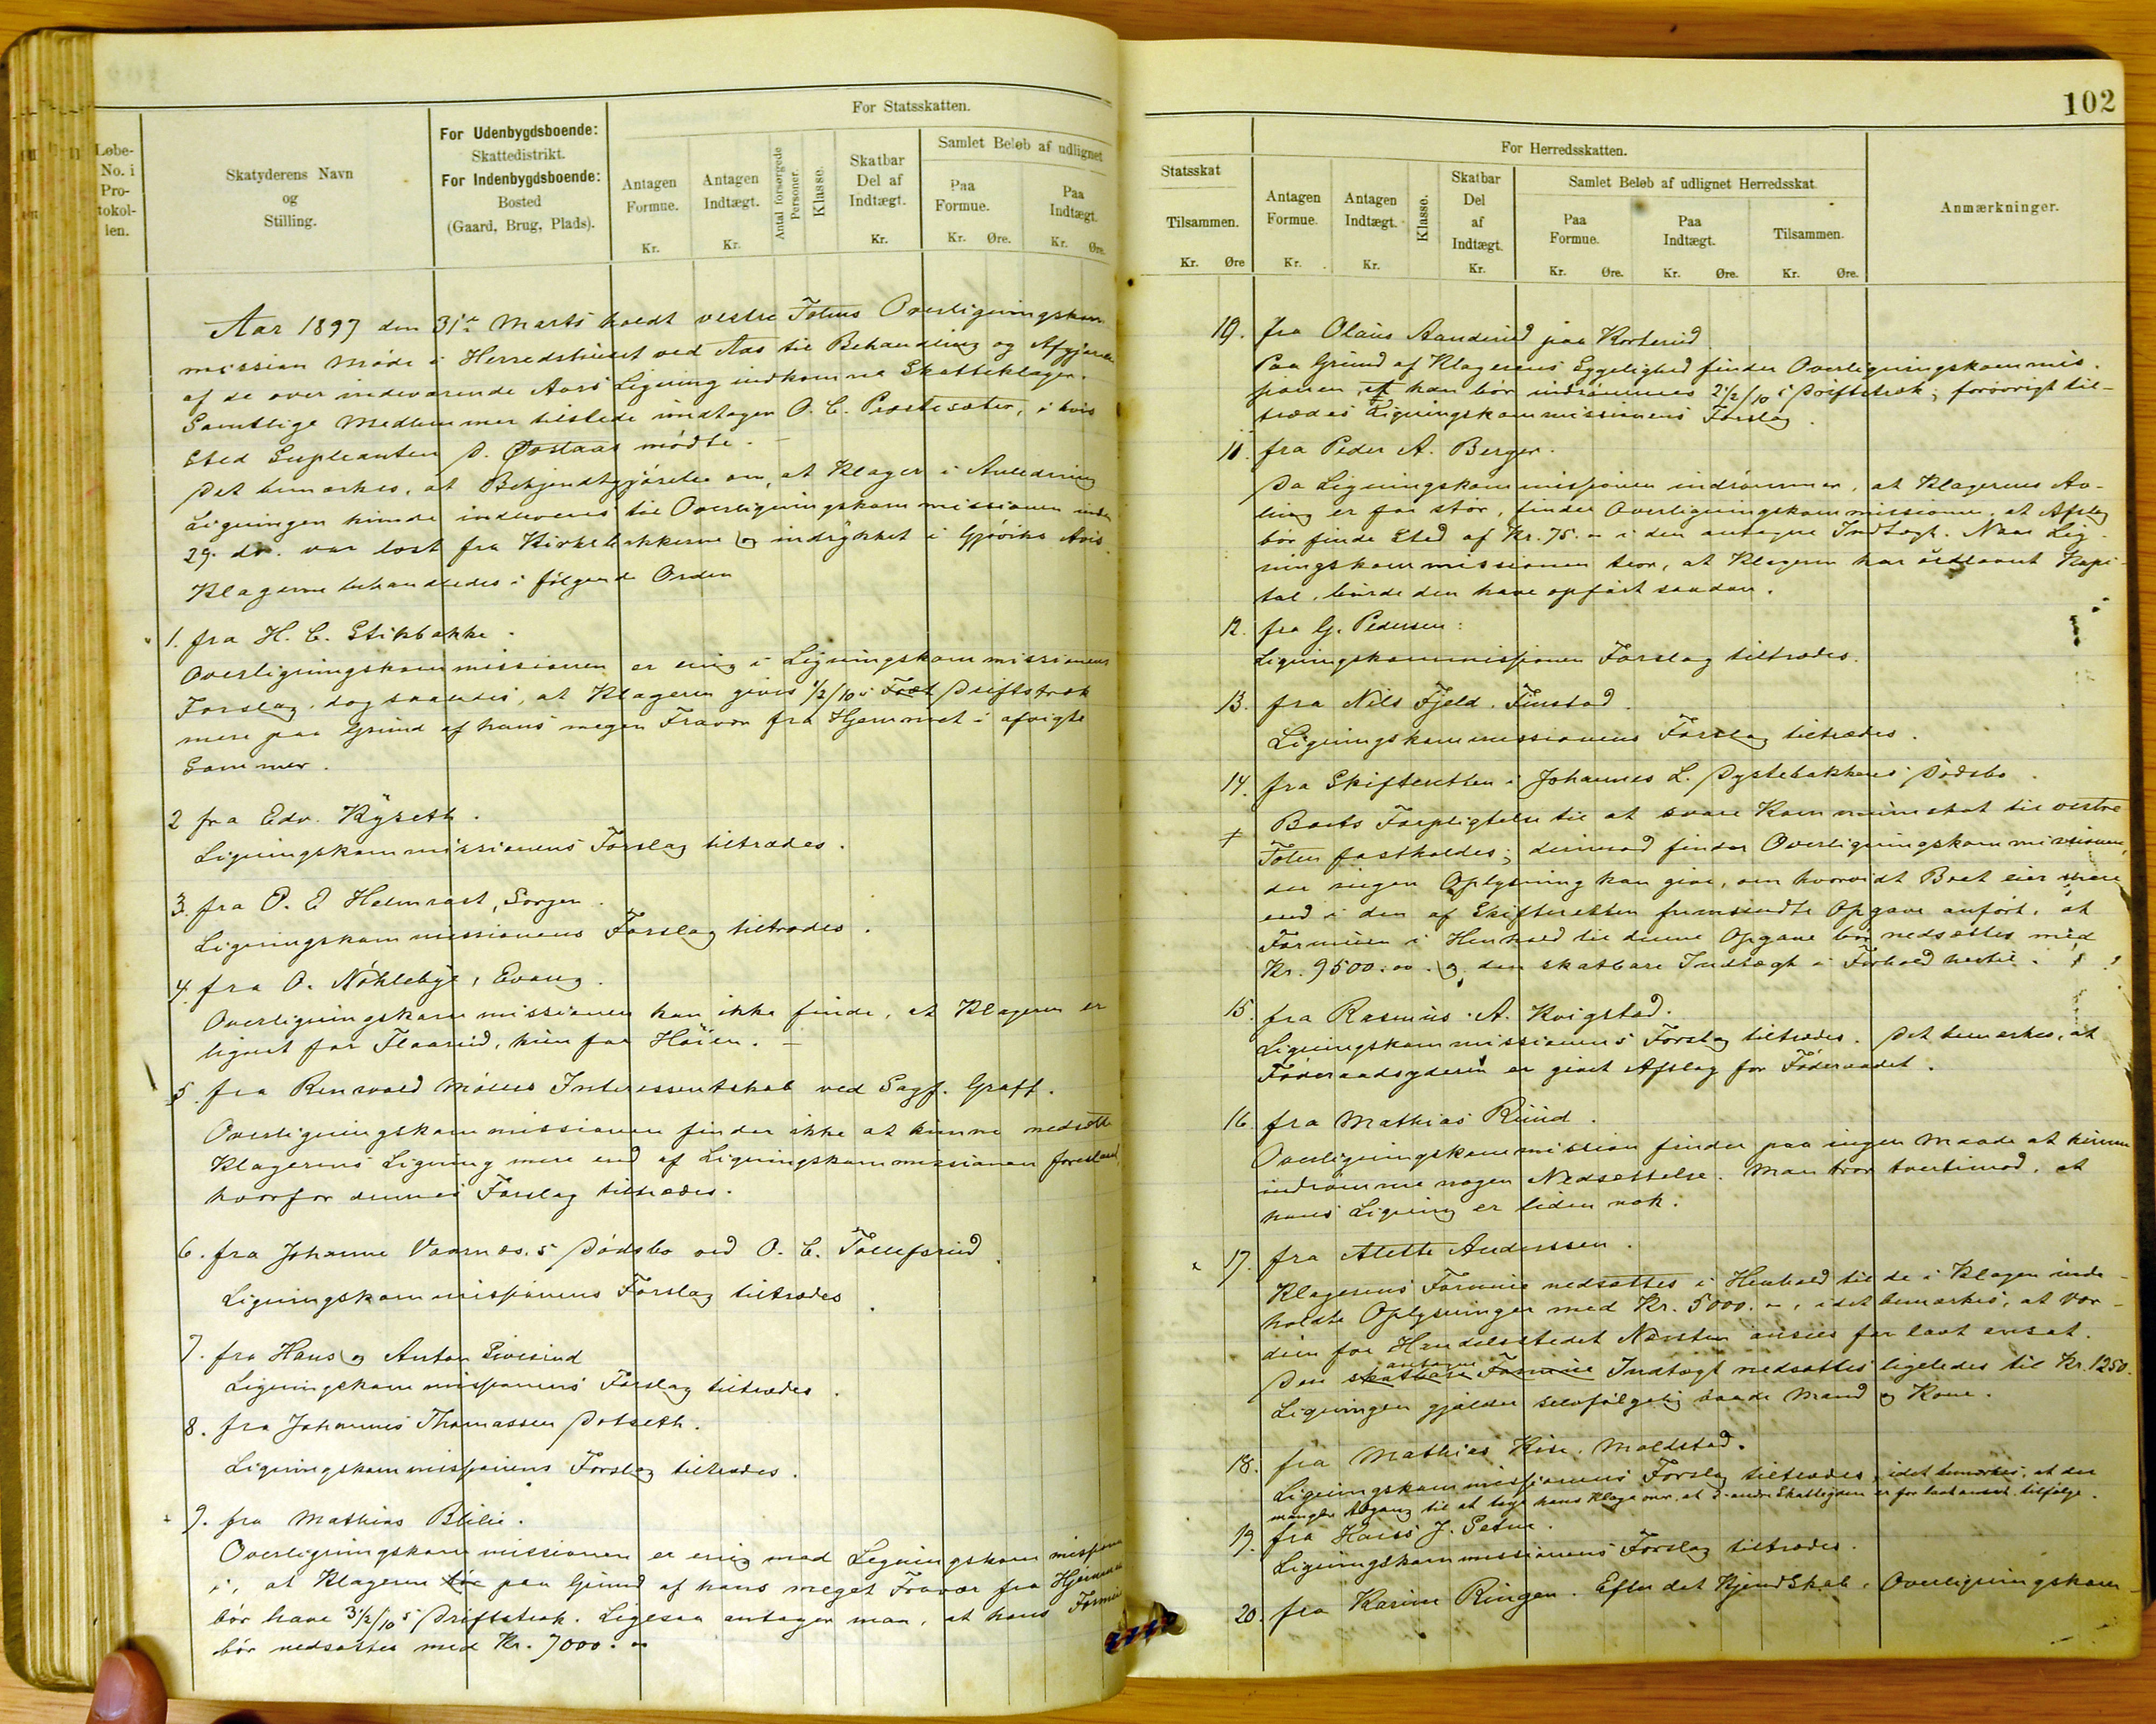 Løbe-
No. i
Pro-
tokol-
len.
Skatyderens Navn
og
Stilling.
For Udenbygdsboende:
Skattedistrikt.
For Indenbygdsboende:
Bosted
(Gaard, Brug, Plads).
For Statsskatten.
Antagen
Formue.
Kr.
Antagen
Indtægt.
Kr.
Antal forsørgede
Personer.
Klasse.
Skatbar
Del af
Indtægt.
Kr.
Samlet Beløb af udlignet
Paa
Formue.
Kr. Øre.
Paa
Indtægt.
Kr. Øre.
Aar 1897 den 31te Marts holdt vestre Totens Overligningskom-
mission Møde i Herredshuset ved Aas til Behandling og Afgjørelse
af de over indeværende Aars Ligning indkomne Skatteklager.
Samtlige Medlemmer tilstede undtagen O. C. Præstesæter, i hvis
Sted Supleanten P. Øvstaas mødte. —
Det bemærkes, at Bekjendtgjørelse om, at Klager i Anledning
Ligningen kunde indleveres til Overligningskommissionen inden
29. ds. var læst fra Kirkebakkerne og indrykket i Gjøviks Avis.
Klagerne behandledes i følgende Orden
1. fra H. C. Stikbakke.
Overligningskommissionen er enig i Ligningskommissionens
Forslag, dog saaledes, at Klageren gives 1/2/10 i Driftstræk
mere paa Grund af hans megen Fravær fra Hjemmet i afvigte
Sommer.
2 fra Edv. Kyseth.
Ligningskommissionens Forslag tiltrædes.
3. fra O. E Helmrast, Sorgen.
Ligningskommissionens Forslag tiltrædes.
4. fra O. Nøkleby, Evang.
Overligningskommissionen kan ikke finde, at Klageren er
lignet for Flaarud, kun for Høien. —
5. fra Reinvold Mølles Interessentskab ved Sagf. Graff.
Overligningskommissionen finder ikke at kunne nedsætte
Klagerens Ligning mere end af Ligningskommissionen foreslaaet,
hvorfor dennes Forslag tiltrædes.
6. fra Johanne Vaarnæs's Dødsbo ved O. C. Tollefsrud.
Ligningskommissjonens Forslag tiltrædes.
7. fra Hans og Anton Sivesind
Ligningskommissjonens Forslag tiltrædes.
8. fra Johannes Thomassen Dotseth.
Ligningskommissjonens Forslag tiltrædes.
9. fra Mathias Blilie.
Overligningskommissionen er enig med Ligningskommissjonen
i, at Klageren paa Grund af hans meget Fravær fra Hjemmet
bør have 3 1/2/10 i Driftstræk. Ligesaa antager man, at hans Formue
bør nedsættes med Kr. 7000.
102
Statsskat
Tilsammen.
Kr. Øre
For Herredsskatten.
Antagen
Formue.
Kr.
Antagen
Indtægt.
Kr.
Klasse.
Skatbar
Del
af
Indtægt.
Kr.
Samlet Beløb af udlignet Herredsskat.
Paa
Formue.
Kr. Øre.
Paa
Indtægt.
Kr. Øre.
Tilsammen.
Kr. Øre.
Anmærkninger.
10. fra Olaus Aanderud paa Korterud
Paa Grund af Klagerens Sygelighed finder Overligningskommis-
sjonen, at han bør indrømmes 2 1/2/10 i Driftstræk; forøvrigt til-
trædes Ligningskommissionens Forslag.
11. fra Peder A. Berger.
Da Ligningskommissjonen indrømmer, at Klagerens Av-
ling er for stor, finder Overligningskommissionen, at Afslag
bør finde Sted af Kr. 75. i den antagne Indtægt. Naar Lig-
ningskommissionen tror, at Klageren har udlaant Kapi-
tal, burde den have opført saadan.
12. fra G. Pedersen:
Ligningskommissjonens Forslag tiltrædes.
13. fra Nils Fjeld, Finstad.
Ligningskommissionens Forslag tiltrædes.
14. fra Skifteretten i Johannes L. Dystebakkens Dødsbo.
Boets Forpligtelse til at svare Kommuneskat til vestre
Toten fastholdes; derimod finder Overligningskommissionen,
der ingen Oplysning kan give, om hvorvidt Boet eier mere
end i den af Skifteretten fremsendte Opgave anført, at
Formuen i Henhold til denne Opgave bør nedsættes med
Kr. 9500.00 og den skatbare Indtægt i Forhold hertil.
15. fra Rasmus A. Kvigstad.
Ligningskommissionens Forslag tiltrædes. Det bemærkes, at
Føderaadsyderen er givet Afslag for Føderaadet.
16. fra Mathias Ruud.
Overligningskommission finder paa ingen Maade at kunne
indrømme nogen Nedsættelse. Man tror tvertimod, at
hans Ligning er liden nok.
17. fra Alette Anderssen.
Klagerens Formue nedsættes i Henhold til de i Klagen inde-
holdte Oplysninger med Kr. 5000., idet bemærkes, at Vær-
dien for Handelsstedet Næsten ansees for lavt ansat.
antagne
Den skatbare Formue Indtægt nedsættes ligeledes til Kr. 1250.
Ligningen gjælder selvfølgelig baade Mand og Kone.
18. fra Mathias Kise, Maldstad.
Ligningskommissjonens Forslag tiltrædes, idet bemærkes, at der
mangler Adgang til at tage hans Klage over, at 3 andre Skatteydere er for lavt ansat, tilfølge.
19. fra Hans J. Setne.
Ligningskommissionens Forslag tiltrædes.
20. fra Karine Ringen. Efter det Kjendskab, Overligningskom-